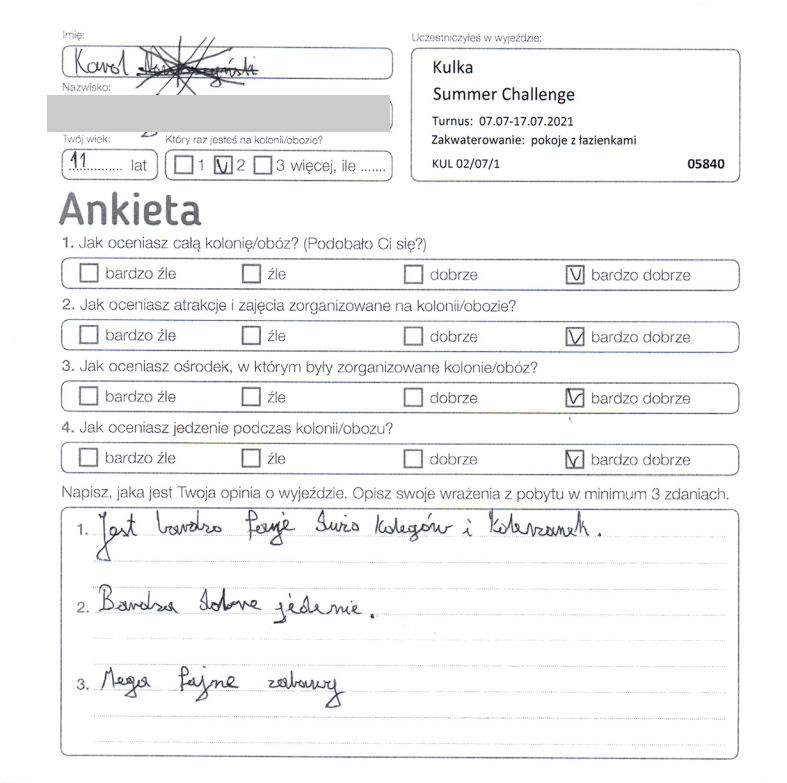 Imię:
Karol
Nazwisko:
Twój wiek:
11 lat
Który raz jesteś na kolonii/obozie?
1 V 2 3 więcej, ile .......
Uczestniczyłeś w wyjeździe:
Kulka
Summer Challenge
Turnus: 07.07-17.07.2021
Zakwaterowanie: pokoje z łazienkami
KUL 02/07/1 05840
Ankieta
1. Jak oceniasz całą kolonię/obóz? (Podobało Ci się?)
bardzo źle źle dobrze V bardzo dobrze
2. Jak oceniasz atrakcje i zajęcia zorganizowane na kolonii/obozie?
bardzo źle źle dobrze V bardzo dobrze
3. Jak oceniasz ośrodek, w którym były zorganizowane kolonie/obóz?
bardzo źle źle dobrze V bardzo dobrze
4. Jak oceniasz jedzenie podczas kolonii/obozu?
bardzo źle źle dobrze V bardzo dobrze
Napisz, jaka jest Twoja opinia o wyjeździe. Opisz swoje wrażenia z pobytu w minimum 3 zdaniach.
1. Jest bardzo fajie dużo kolegów i koleżanek.
2. Bardzo dobre jédenie.
3. Mega fajne zabawy